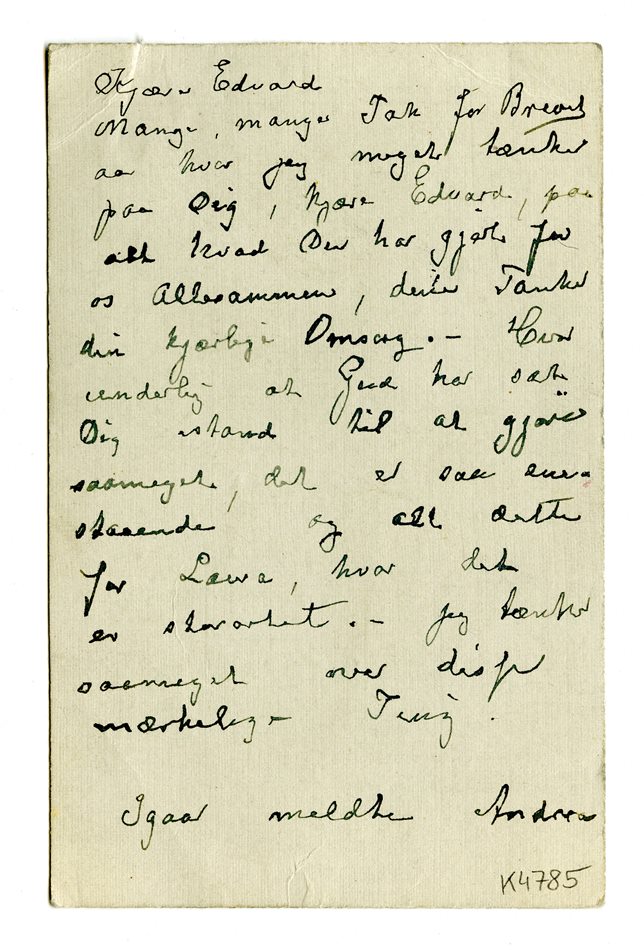 Kjære Edvard
Mange, mange Tak for Brevet
aa hvor jeg meget tænker
paa Dig, kjære Edvard, paa
alt hvad Der har gjørt for
os Allesammen, denne Tanke
din kjærlige Omsorg. – Hvor
underlig at Gud har sat
Dig istand til at gjøre
saameget, det er saa ene-
staaende og alt dette
for Laura, hvor det
er storartet. – jeg tænker
saameget over disse
mærkelige Ting.
Igaar meldte Andrea
K4785